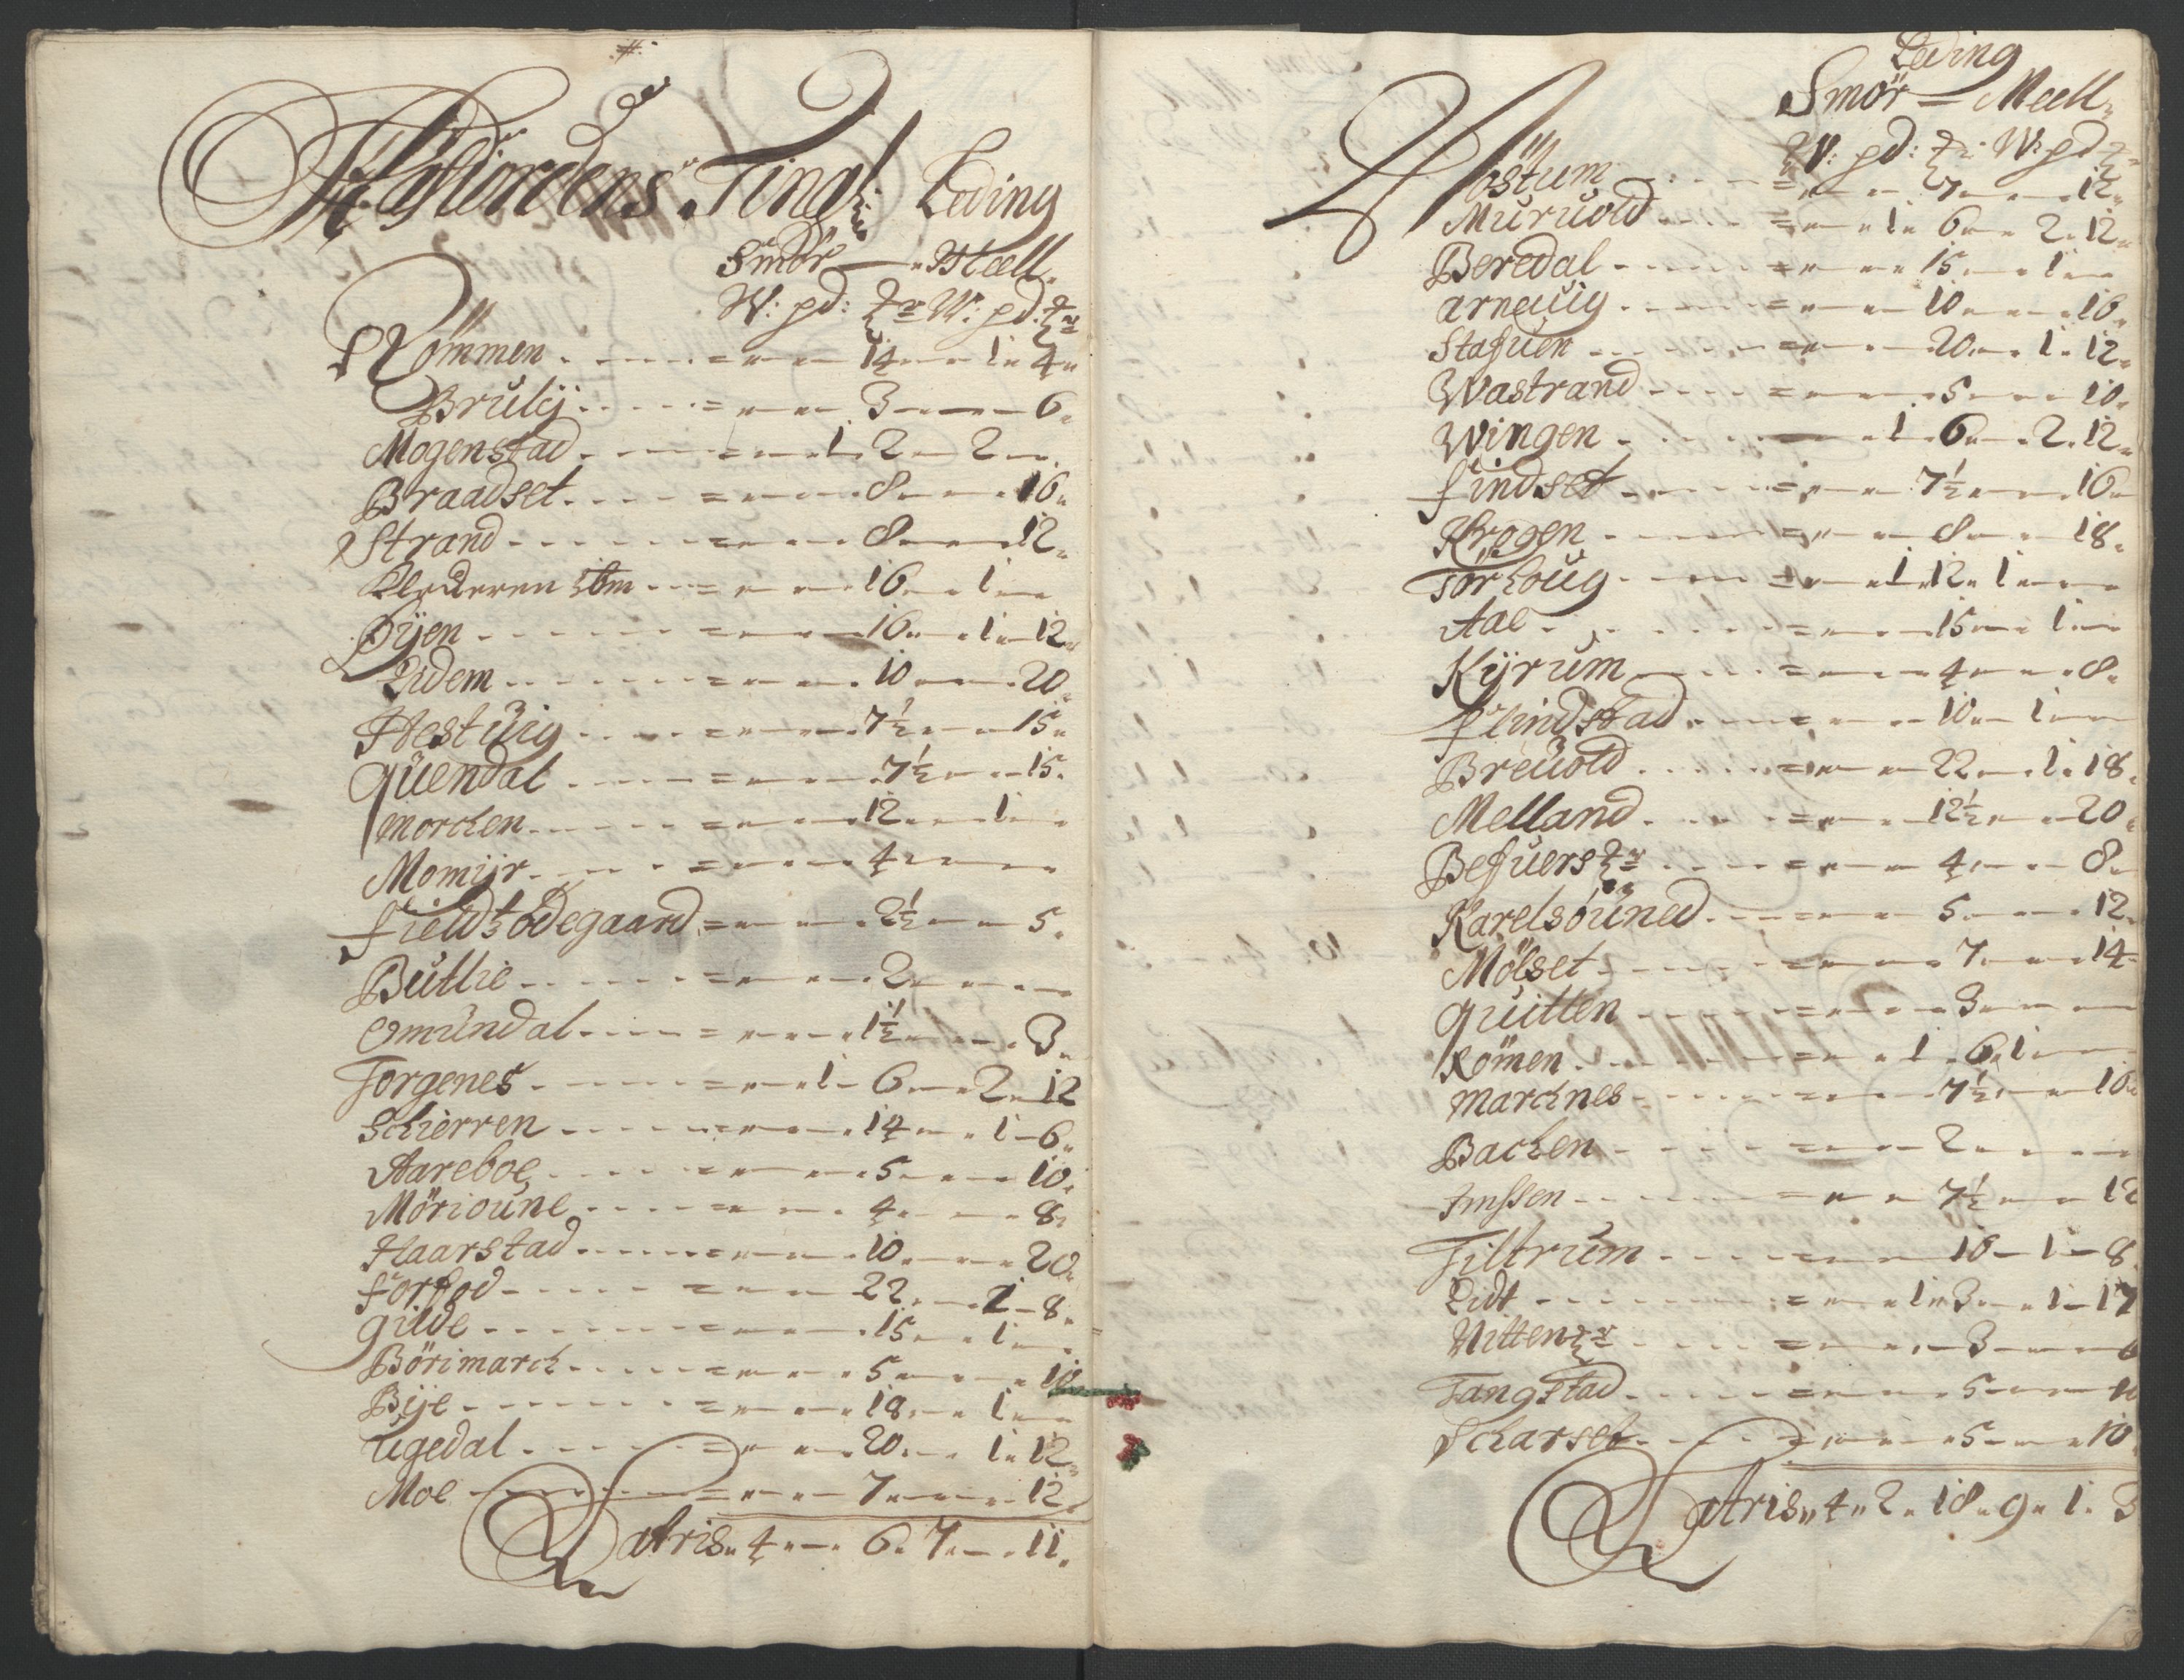 Tingl: Leding
Smör — Meell
W: pd: W: pd:
Römmen - - - - = 14 1 4
Brulij - - - - = 3 6
Mogenstad - - - - = 1 2 2
Braadset - - - - = 8 16
Strand - - - - = 8 12
16 1
Öyen - - - - = 16 1 12
Eidem - - - - = 10 20
Hestuig - - - - = 7½ 15
Quendal - - - - = 7½ 15
Morchen - - - - = 12 1
Momyr - - - - = 4
Fields ödegaard = 2½ 5
Butlie - - - - = 2
Omundal - - - - = 1½ 3
Torgenes - - - - = 1 6 2 12
Schierren - - - - = 14 1 6
Aareboe - - - - = 5 10
Mörioune - - - - = 4 8
Haarstad - - - - = 10 20
Forfod - - - - = 22 1 8
Gilde - - - - = 15 1
Börimarch - - - - = 5 10
Bye - - - - = 18 1
Ugedal - - - - = 20 1 12
Moe - - - - = 7 12
Latris 4 6 7 11
Leding
Smör — Meell
W: pd: W: pd
Höstum - - - - = 7 12
Muruold - - - - = 1 6 2 12
Beredal - - - - = 15 1
Arneuig - - - - = 10 16
Stafuen - - - - = 20 1 12
Wastrand - - - - = 5 10
Wingen - - - - = 1 6 2 12
Findset - - - - = 7½ 16
Krogen - - - - = 8 18
Torhoug - - - - = 1 12 1
Aae - - - - = 15 1
Kyrum - - - - = 4 8
Flindstad - - - - = 10 1
Breuold - - - - = 22 1 18
Melland - - - - = 12½ 20
Befuers - - - - = 4 8
Karelsouned - - - - = 5 12
Mölset - - - - = 7 14
Quitten - - - - = 3
Römen - - - - = 1 6 1
Marchnes - - - - = 7½ 16
Bachen - - - - = 2
Imssen - - - - = 7½ 12
Tiltrum - - - - = 16 1 8
Eidt - - - - = 1 3 1 17
Vitten - - - - = 3 6
Tangstad - - - - = 5 10
Scharset - - - - = 5 10
Latris 4 2 18 9 1 3